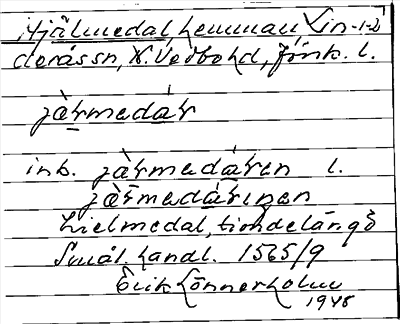 Hjälmedal, hemman Lin-1-2
derås sn, N. Vedbo hd, Jönk. l.
jàrmadár
inb. jàrmadáren l.
jàrmadáringen
Hielmedal, tiondelängd
Smål. handl. 1565/9
Erik Lönnerholm
1948